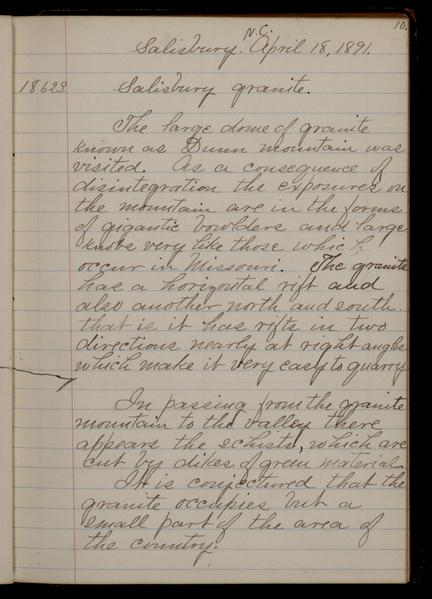 10.
Salisbury. N.C. April 18, 1891.
18629 Salisbury granite.
The large dome of granite
known as Dunn mountain was
visited. As a consequence of
disintegration the exposures on
the mountain are in the forms
of gigantic bowlders and large
knobs very like those which
occur in Missouri. The granite
has a horizontal rift and
also another north and south.
that is it has rifts in two
directions nearly at right angles
which make it very easy to quarry.
In passing from the granite
mountain to the valley there
appears the schists, which are
cut by dikes of green material.
It is conjectured that the
granite occupies but a
small part of the area of
the country.